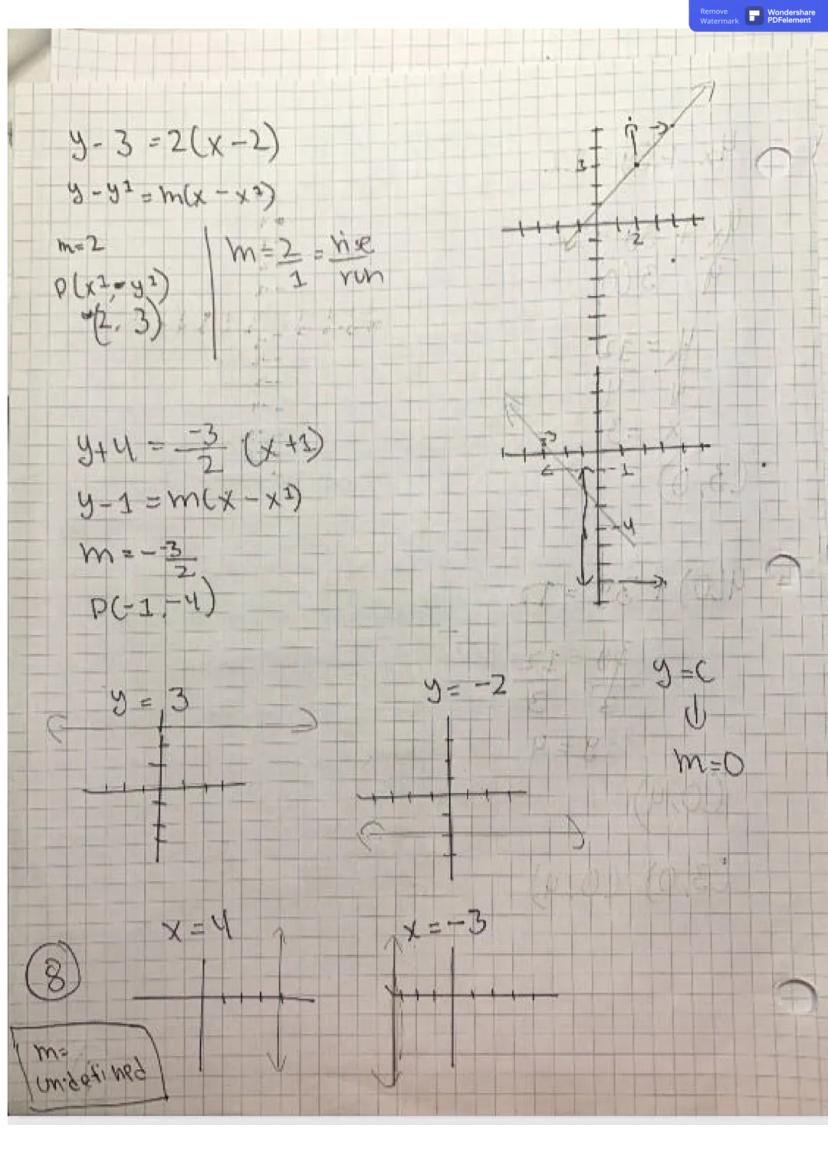 Remove
Watermark
Wondershare
PDFelement
y - 3 = 2(x - 2)
y - y¹ = m(x - x¹)
m = 2
P(x¹, y¹)
(2, 3)
m = 2/1 = rise/run
3
2
y + 4 = -3/2 (x + 1)
y - 1 = m(x - x¹)
m = - -3/2
P(-1, -4)
-1
-4
y = 3
y = -2
y = c
⇓
m = 0
x = 4
x = -3
8
m =
undefined